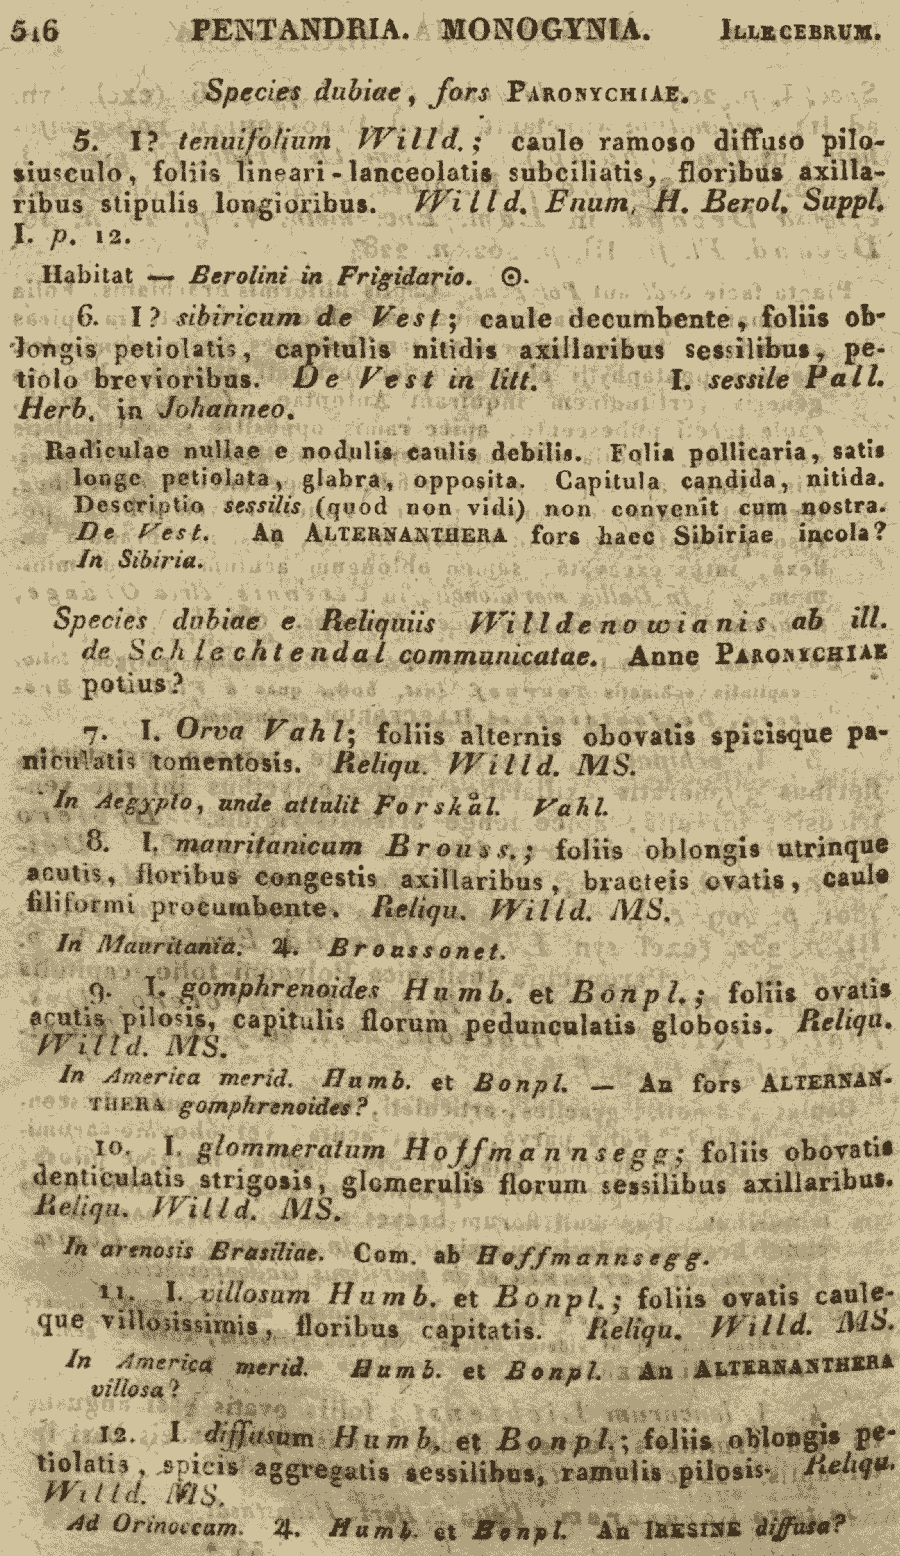 516 PENTANDRIA. MONOGYNIA. ILLECEBRUM.
Species dubiae, fors PARONYCHIAE.
5. I? tenuifolium Willd.; caule ramoso diffuso pilo-
siusculo, foliis lineari-lanceolatis subciliatis, floribus axilla-
ribus stipulis longioribus. Willd. Enum. H. Berol. Suppl.
I. p. 12.
Habitat — Berolini in Frigidario. ☉.
6. I? sibiricum de Vest; caule decumbente, foliis ob-
longis petiolatis, capitulis nitidis axillaribus sessilibus, pe-
tiolo brevioribus. De Vest in litt. I. sessile Pall.
Herb. in Johanneo.
Radiculae nullae e nodulis caulis debilis. Folia pollicaria, satis
longe petiolata, glabra, opposita. Capitula candida, nitida.
Descriptio sessilis (quod non vidi) non convenit cum nostra.
De Vest. An ALTERNANTHERA fors haec Sibiriae incola?
In Sibiria.
Species dubiae e Reliquiis Willdenowianis ab ill.
de Schlechtendal communicatae. Anne PARONYCHIAE
potius?
7. I. Orva Vahl; foliis alternis obovatis spicisque pa-
niculatis tomentosis. Reliqu. Willd. MS.
In Aegypto, unde attulit Forskål. Vahl.
8. I. mauritanicum Brouss.; foliis oblongis utrinque
acutis, floribus congestis axillaribus, bracteis ovatis, caule
filiformi procumbente. Reliqu. Willd. MS.
In Mauritania. ♃. Broussonet.
9. I. gomphrenoides Humb. et Bonpl.; foliis ovatis
acutis pilosis, capitulis florum pedunculatis globosis. Reliqu.
Willd. MS.
In America merid. Humb. et Bonpl. — An fors ALTERNAN-
THERA gomphrenoides?
10. I. glommeratum Hoffmannsegg; foliis obovatis
denticulatis strigosis, glomerulis florum sessilibus axillaribus.
Reliqu. Willd. MS.
In arenosis Brasiliae. Com. ab Hoffmannsegg.
11. I. villosum Humb. et Bonpl.; foliis ovatis caule-
que villosissimis, floribus capitatis. Reliqu. Willd. MS.
In America merid. Humb. et Bonpl. An ALTERNANTHERA
villosa?
12. I. diffusum Humb. et Bonpl.; foliis oblongis pe-
tiolatis, spicis aggregatis sessilibus, ramulis pilosis. Reliqu.
Willd. MS.
Ad Orinoccam. ♃. Humb. et Bonpl. An IRESINE diffusa?